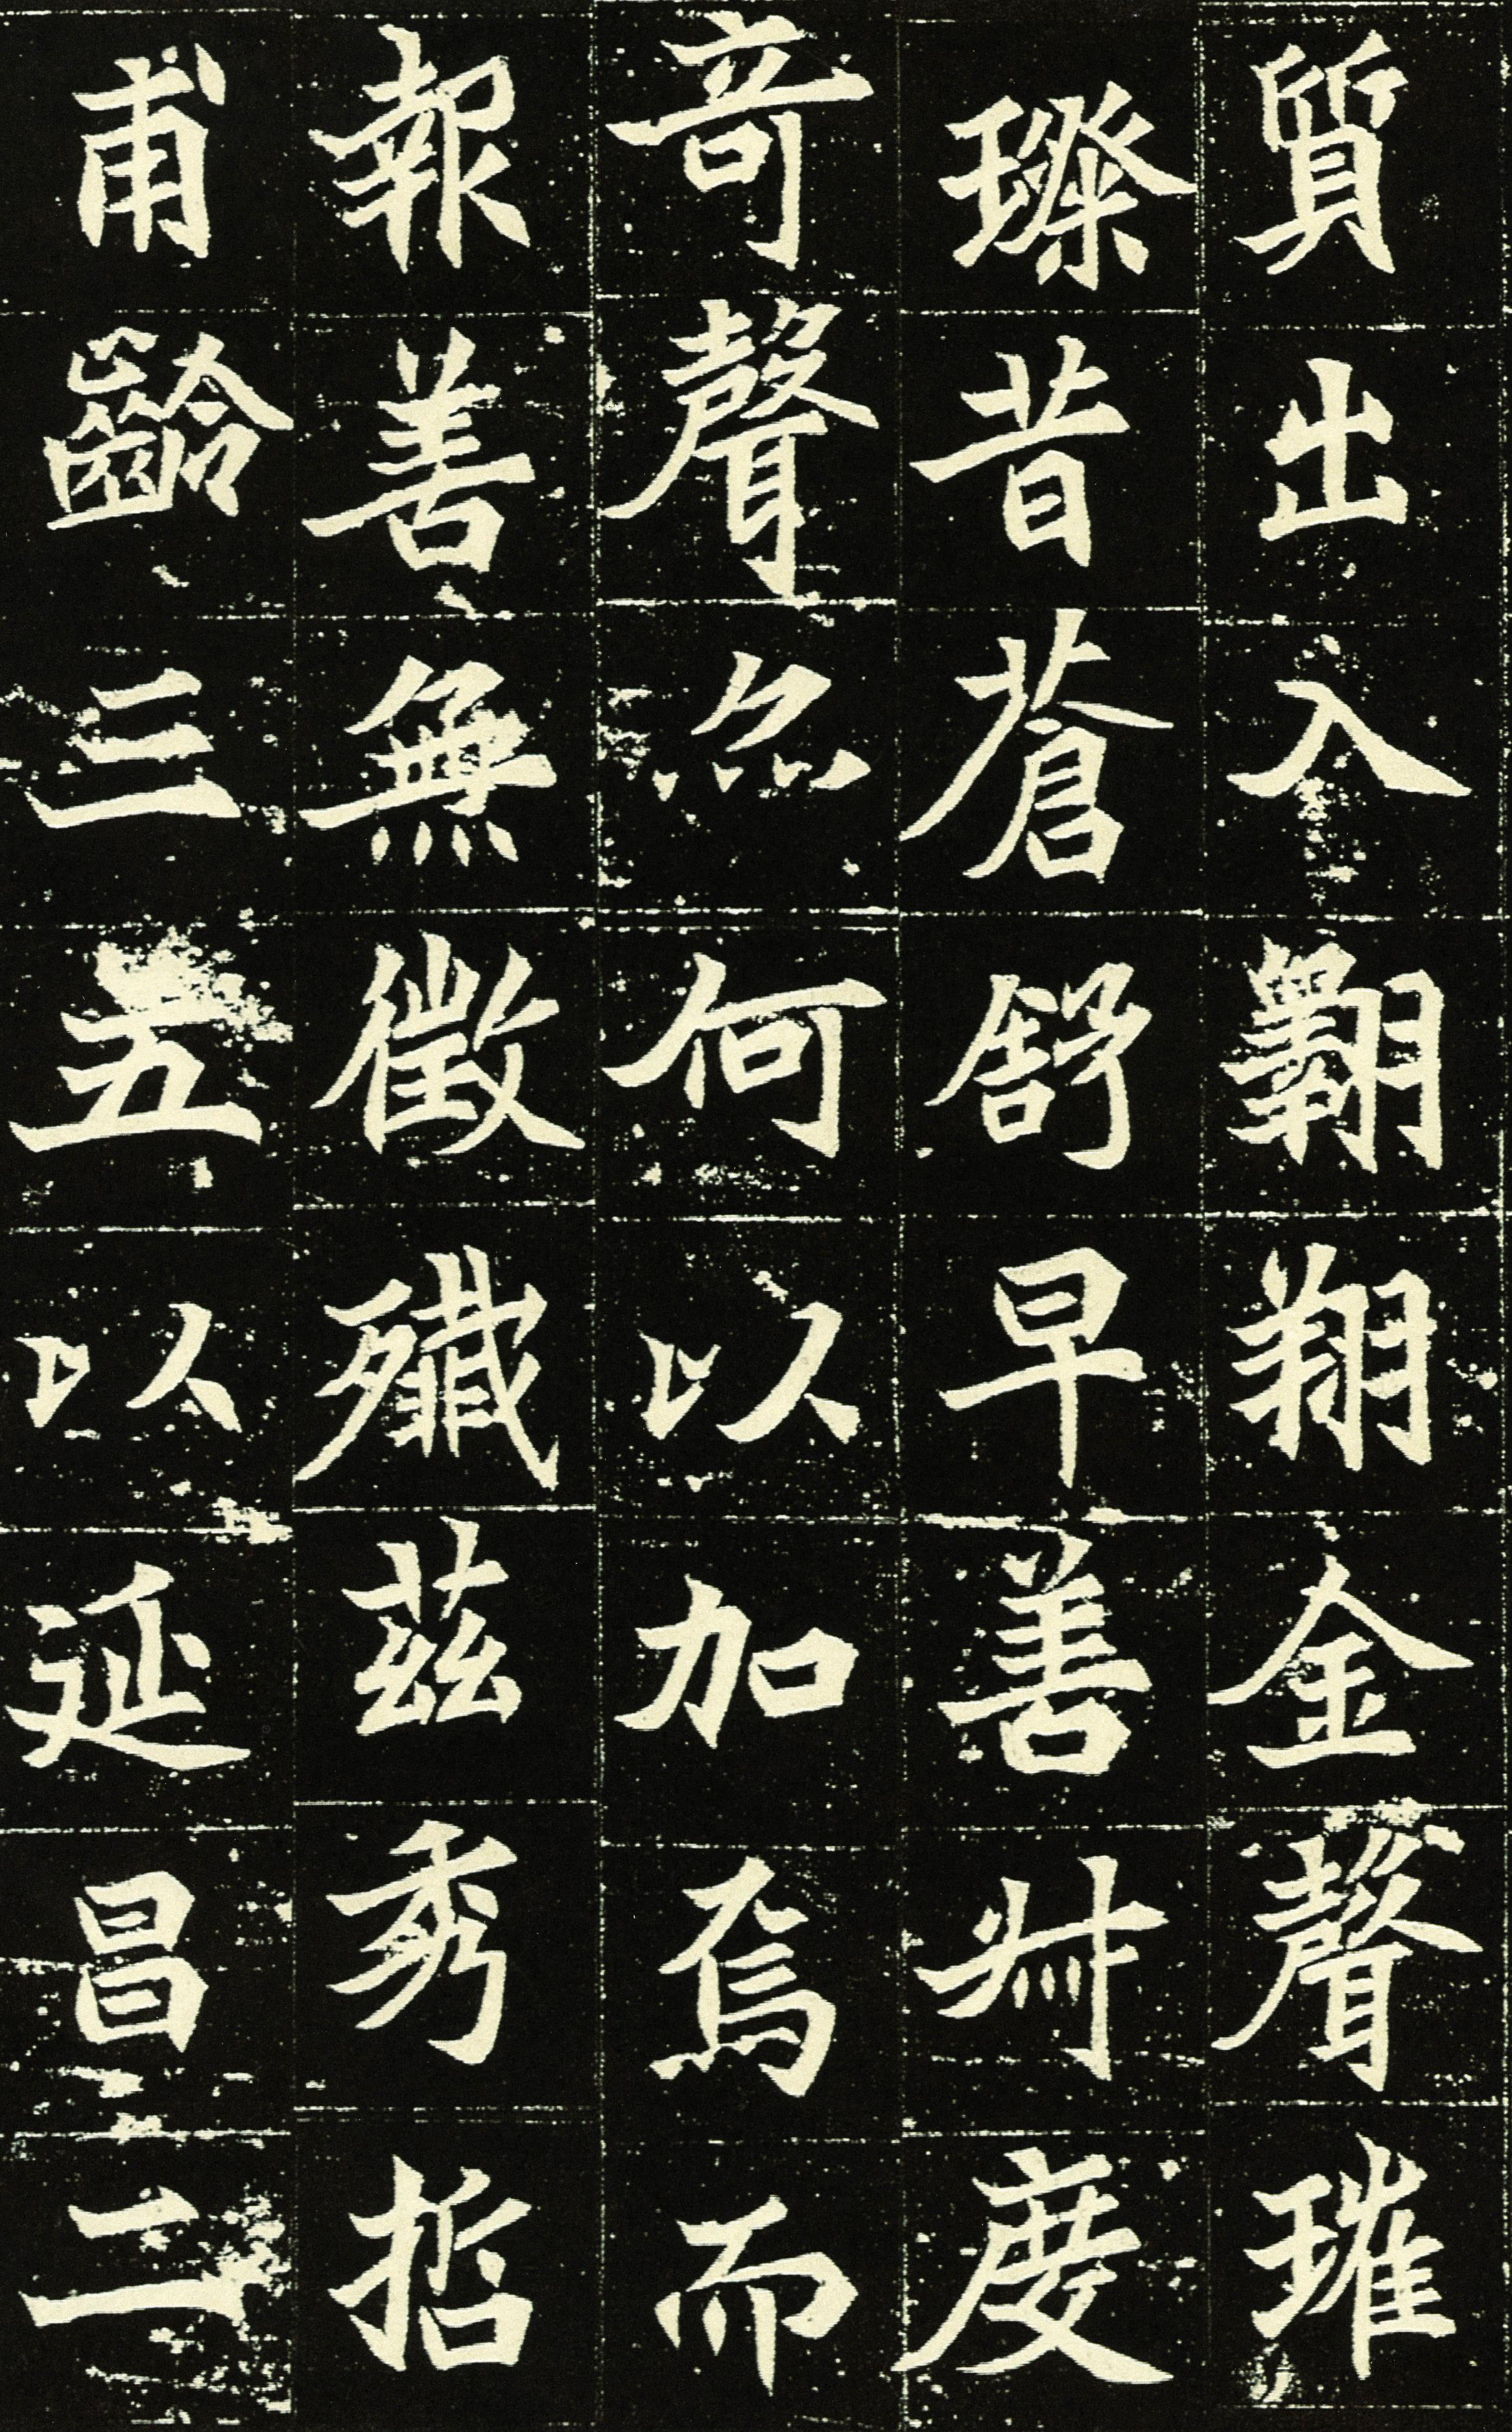 質出入翱翔金聲璀
璨昔蒼舒早善叔度
竒聲亦何以加焉而
報善無徵殲茲秀哲
甫齡三五以延昌二